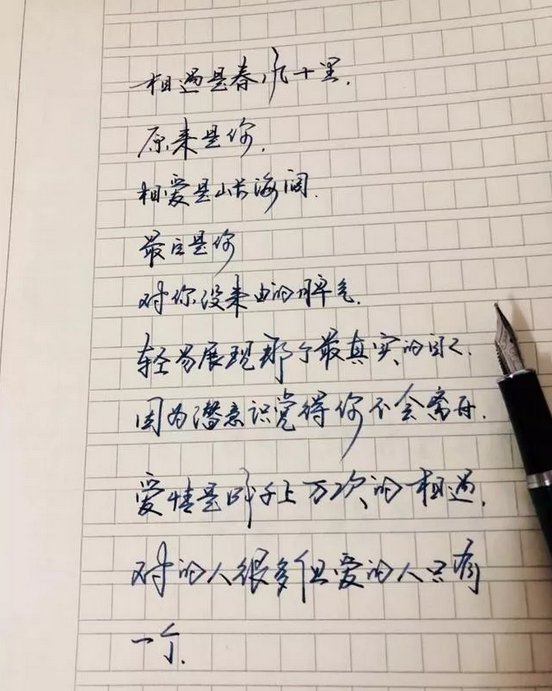 相遇是春风十里.
原来是你.
相爱是山长海阔.
最后是你
对你没来由的脾气.
轻易展现那个最真实的自己.
因为潜意识觉得你不会离开.
爱情是成千上万次的相遇.
对的人很多但爱的人只有
一个.